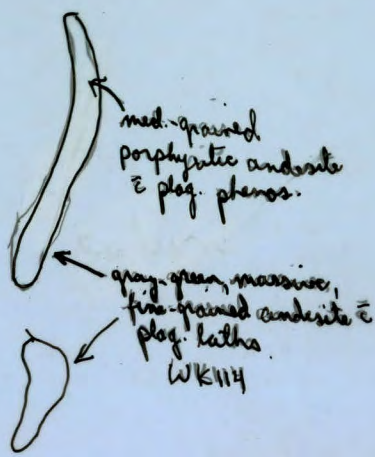 med.-grained
porphyritic andesite
c̄ plag. phenos.
gray-green, massive,
fine-grained andesite c̄
plag. laths.
WK114